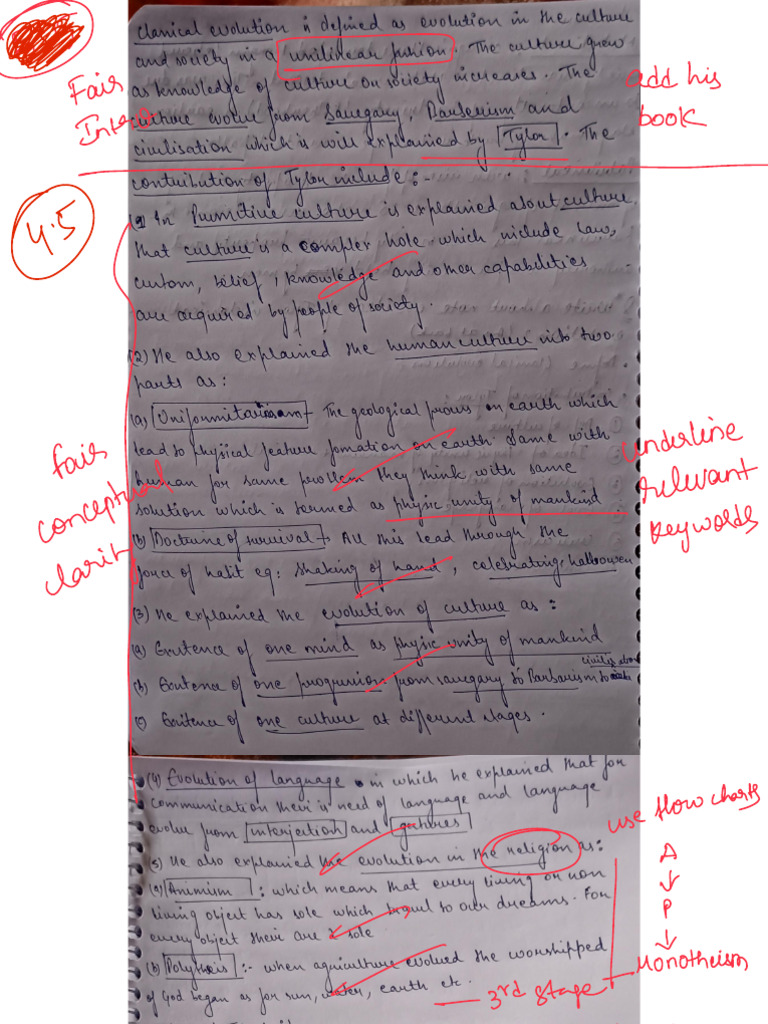 Classical evolution is defined as evolution in the culture
and society in a unilinear fusion. The culture grew
Fair
as knowledge of culture or society increases. The
add his
Intro
culture evolve from Savegary, Barberism and
book
civilisation which is will explained by Tylor. The
contribution of Tylor include :-
4.5
(1) In Primitive culture is explained about culture
that culture is a complex hole which include law,
custom, belief, knowledge and other capabilities
are acquired by people of society.
(2) He also explained the human culture into two
parts as :
(a) Uniformitarianism The geological process on earth which
lead to physical feature fomation on earth same with
human for same problem they think with same
solution which is termed as physic unity of mankind
fair
conceptual
clarity
underline
relevant
keywords
(b) Doctrine of survival All this lead through the
force of habit eg: shaking of hand, celebrating halloween
(3) He explained the evolution of culture as :
(a) Existence of one mind as physic unity of mankind
(b) Existence of one progression from savegary to Barbarism to
(c) Existence of one culture at different stages.
(4) Evolution of language in which he explained that for
communication their is need of language and language
evolve from interjection and gestures
use flow charts
5) He also explained the evolution in the religion as:
(a) Animism : which means that every living or non
living object has sole which to our dreams. For
every object their are 2 sole
A
↓
P
↓
Monotheism
(b) Polytheis :- when agriculture evolved the worshipped
of God began as for sun, water, earth etc.
3rd stage